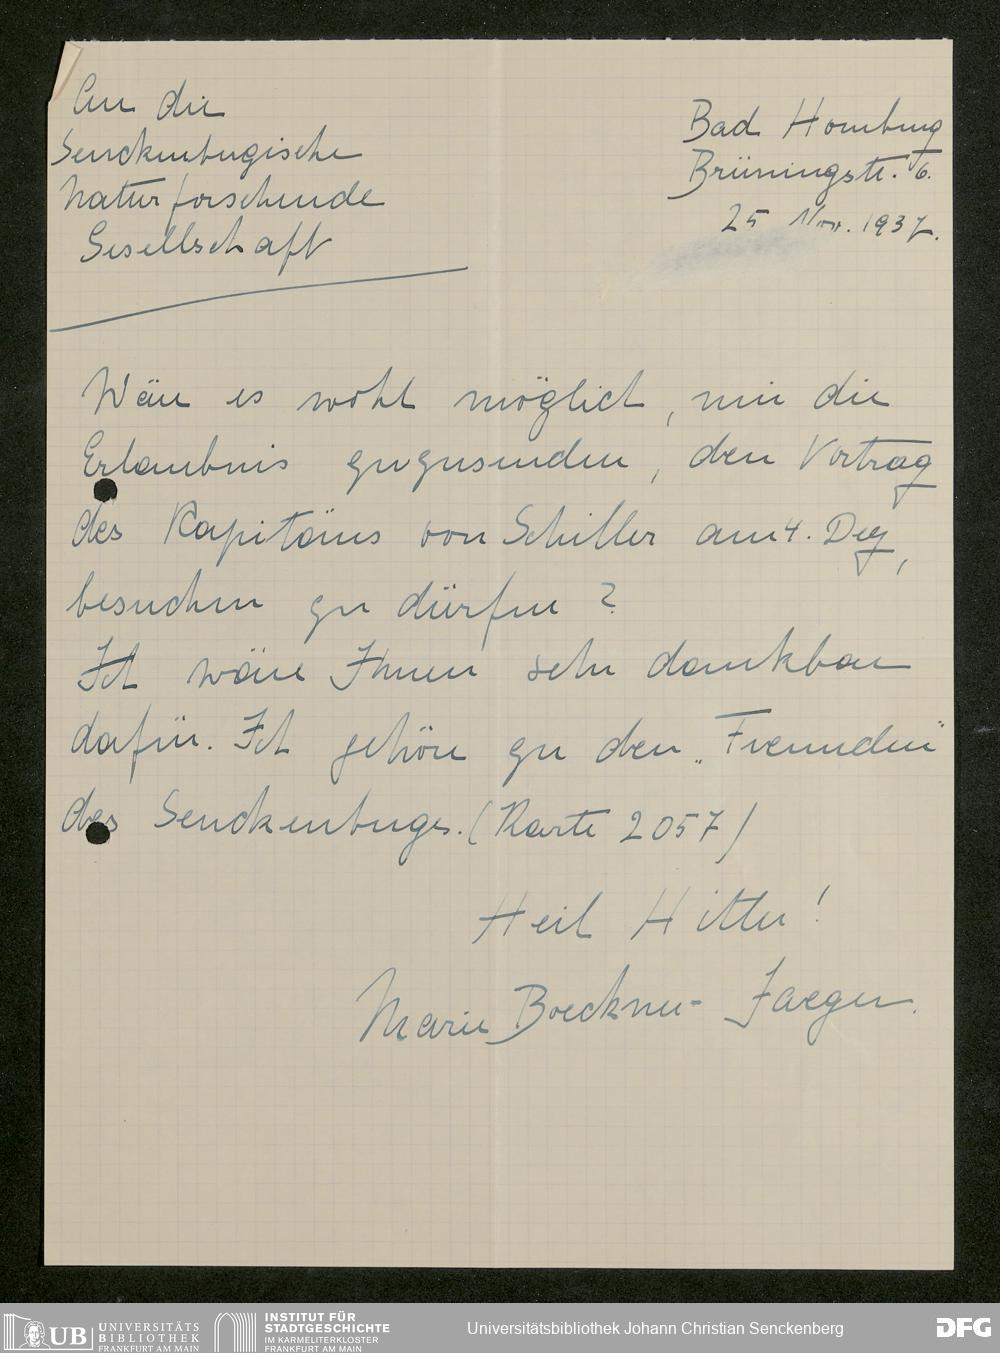 An die
Senckenbergische
Naturforschende
Gesellschaft
Bad Homburg
Brüningstr. 6.
25 Nov. 1937.
Wäre es wohl möglich, mir die
Erlaubnis zuzusenden, den Vortrag
des Kapitäns von Schiller am 4. Dez,
besuchen zu dürfen?
Ich wäre Ihnen sehr dankbar
dafür. Ich gehöre zu den „Freunden"
des Senckenbergs. (Karte 2057)
Heil Hitler!
Marie Boeckner-Jaeger.
UB UNIVERSITÄTS
BIBLIOTHEK
FRANKFURT AM MAIN
INSTITUT FÜR
STADTGESCHICHTE
IM KARMELITERKLOSTER
FRANKFURT AM MAIN
Universitätsbibliothek Johann Christian Senckenberg
DFG